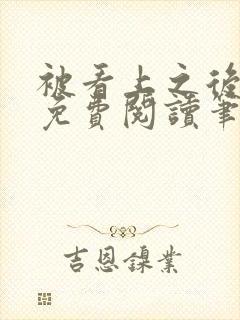 被看上之後
免費閱讀筆
吉恩鎳業